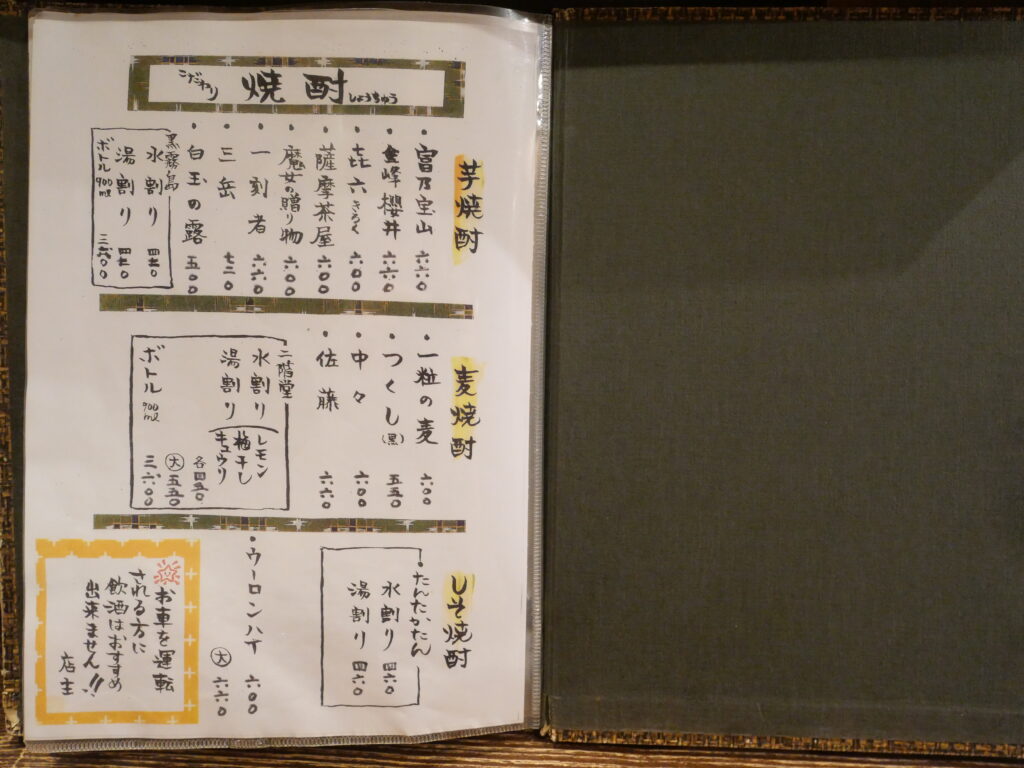 こだわり 焼酎 しょうちゅう
芋焼酎
・富乃宝山 六六〇
・金峰櫻井 六六〇
・㐂六きろく 六〇〇
・薩摩茶屋 六〇〇
・魔女の贈り物 六〇〇
・一刻者 六六〇
・三岳 七二〇
・白玉の露 五〇〇
黒霧島
水割り 四五〇
湯割り 四五〇
ボトル 900ml 三六〇〇
麦焼酎
・一粒の麦 六〇〇
・つくし(黒) 五五〇
・中々 六〇〇
・佐藤 六六〇
二階堂
水割り
湯割り
レモン
梅干し
キュウリ
各四五〇
大 五五〇
ボトル 900ml 三六〇〇
しそ焼酎
・たんたかたん
水割り 四六〇
湯割り 四六〇
・ウーロンハイ 六〇〇
大 六六〇
お車を運転
される方に
飲酒はおすすめ
出来ません!!
店主